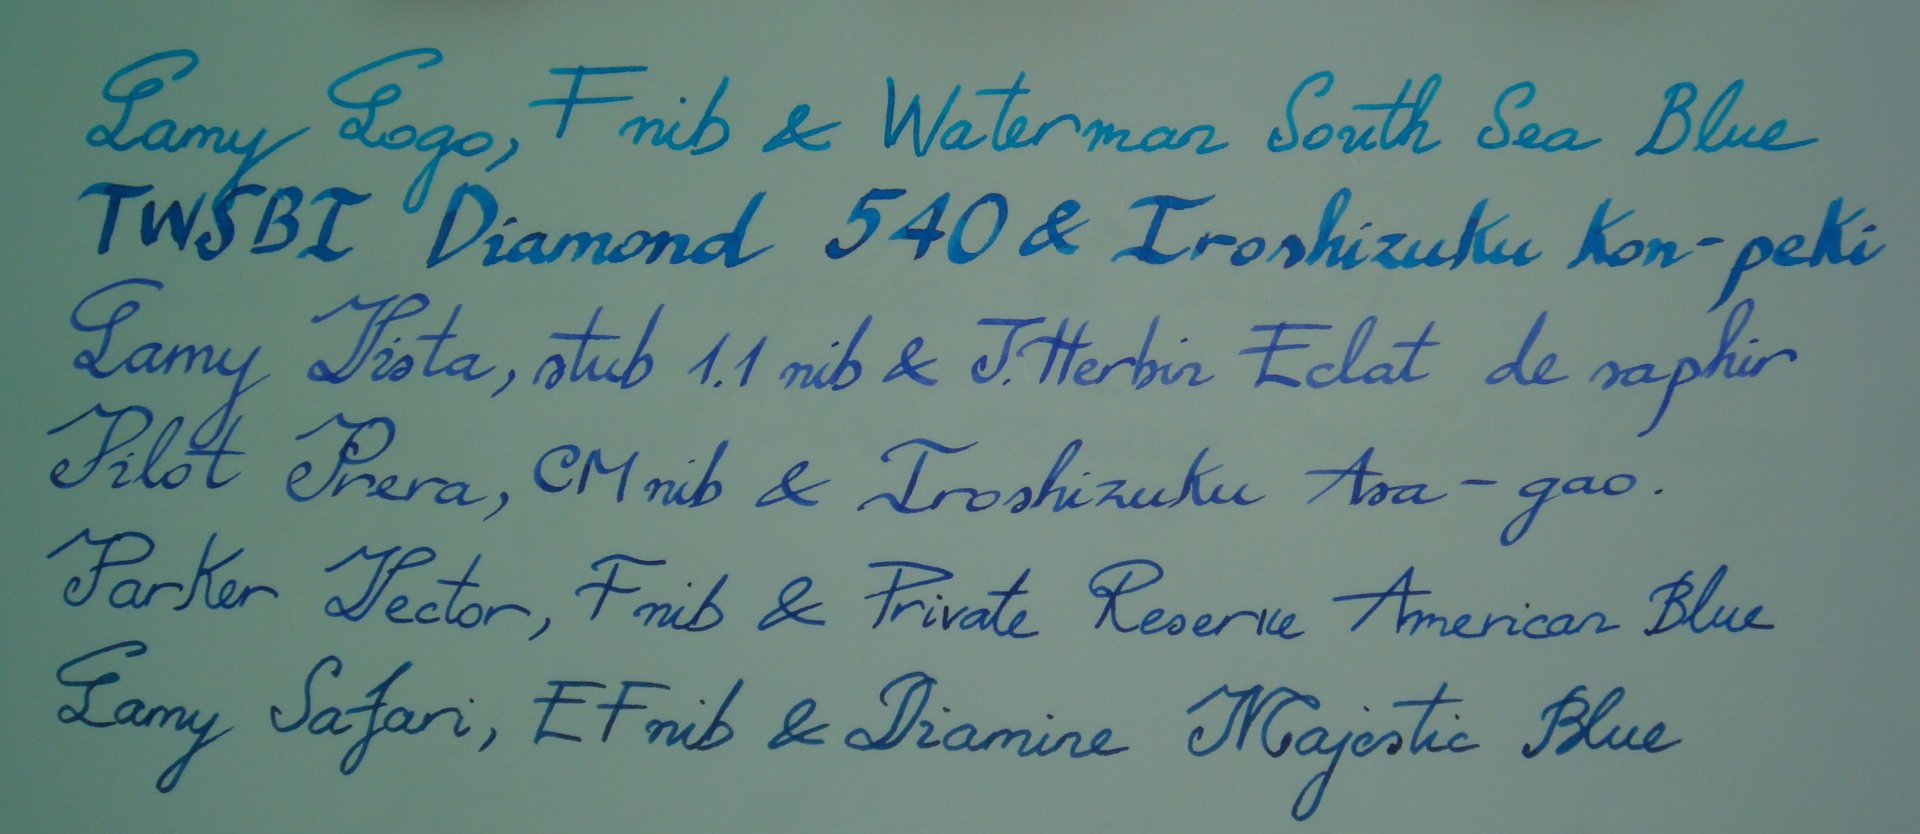 Lamy Logo, F nib & Waterman South Sea Blue
TWSBI Diamond 540 & Iroshizuku Kon-peki
Lamy Vista, stub 1.1 nib & J. Herbin Eclat de saphir
Pilot Prera, CM nib & Iroshizuku Asa-gao.
Parker Vector, F nib & Private Reserve American Blue
Lamy Safari, EF nib & Diamine Majestic Blue